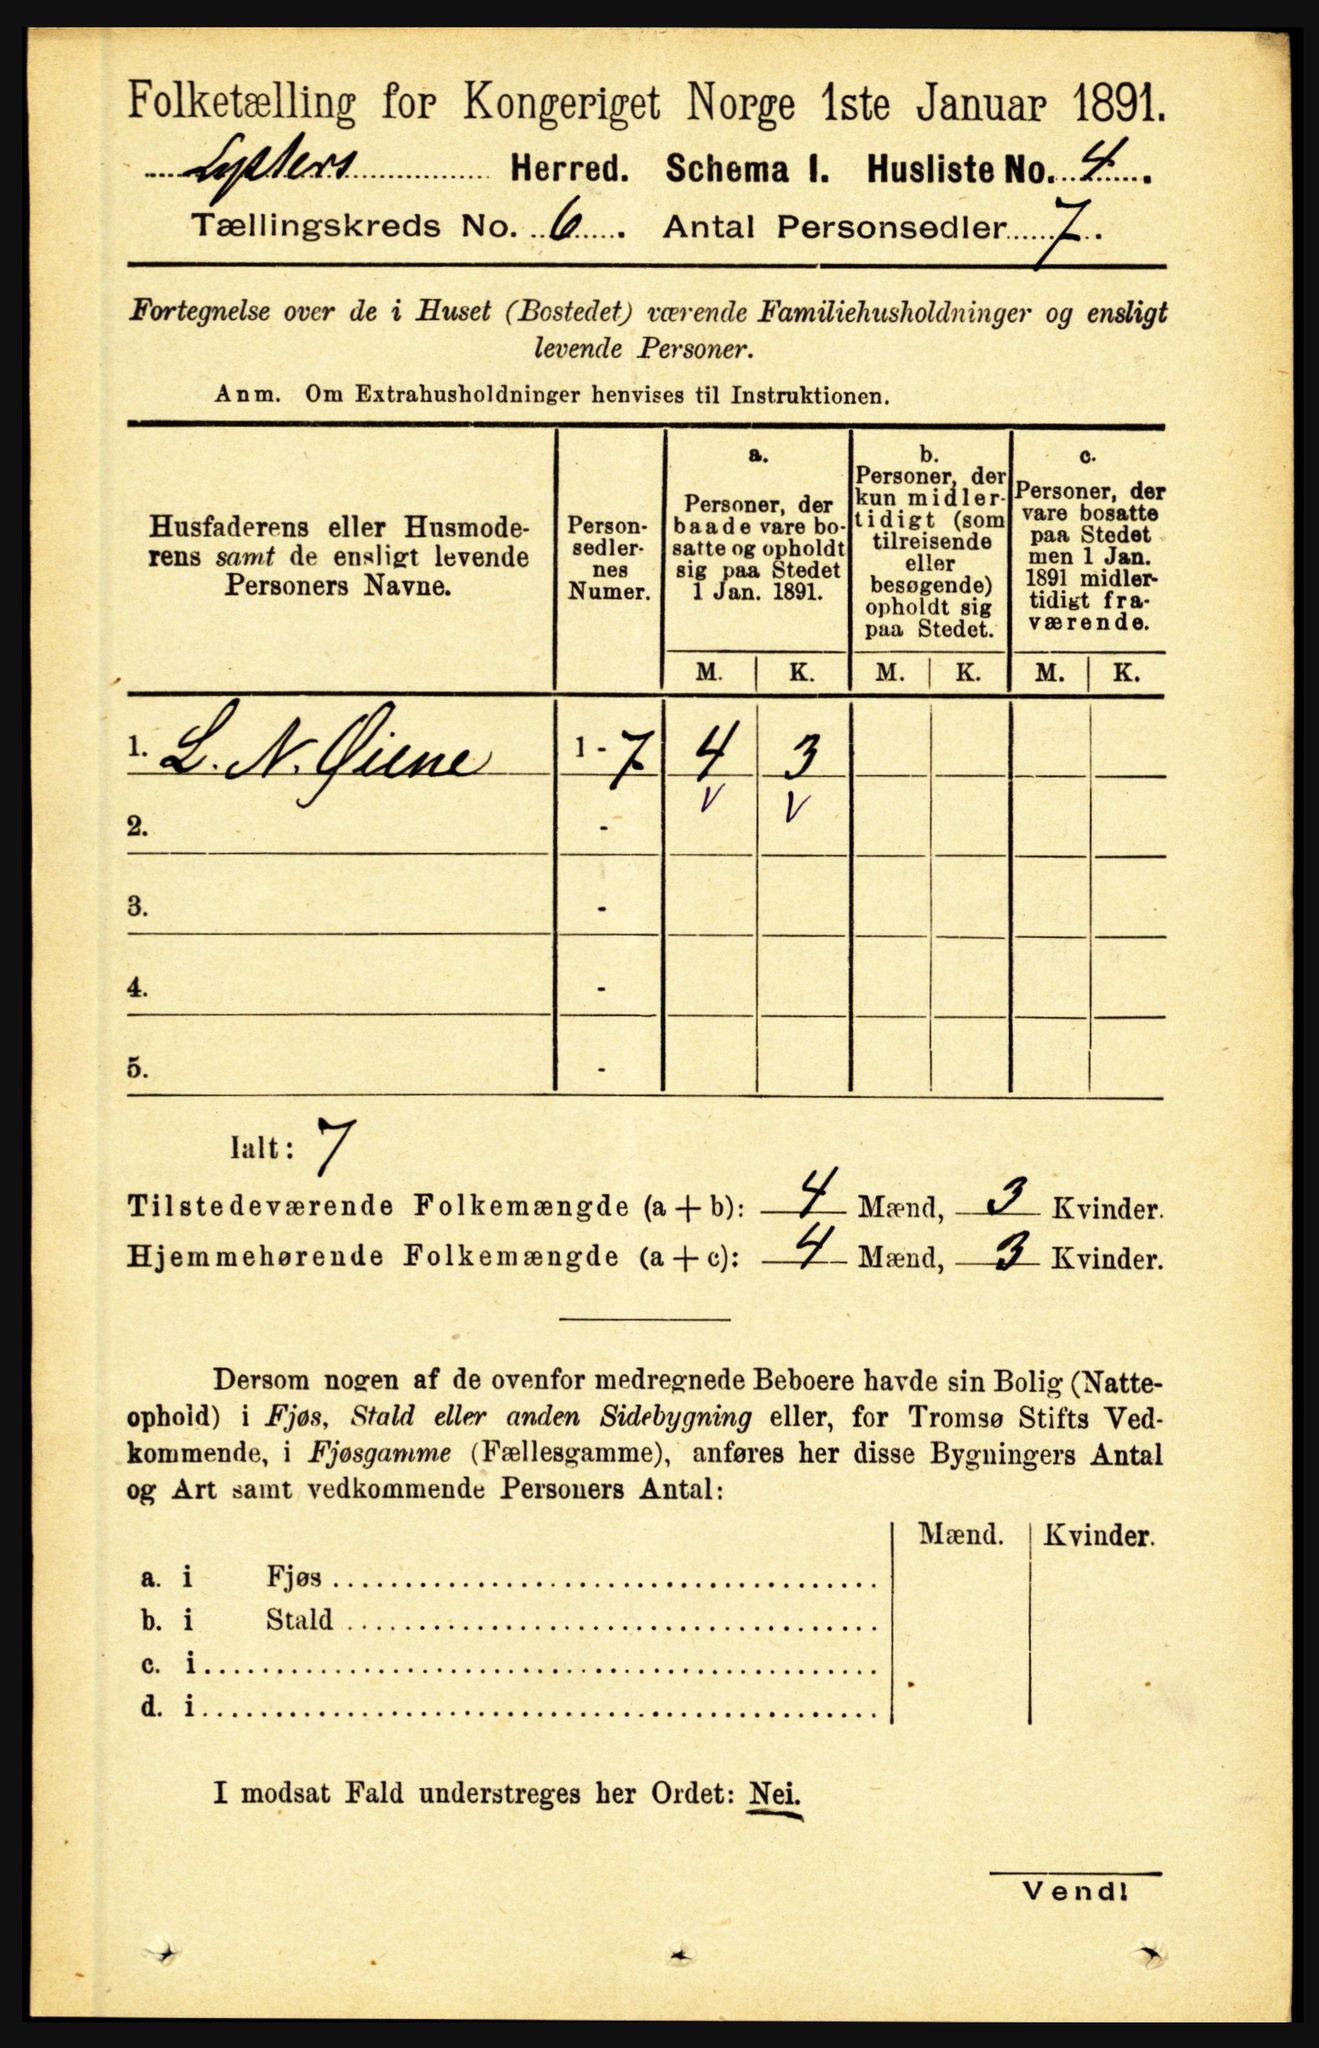 Folketælling for Kongeriget Norge 1ste Januar 1891.
Lysters Herred. Schema I. Husliste No. 4.
Tællingskreds No. 6. Antal Personsedler 7.
Fortegnelse over de i Huset (Bostedet) værende Familiehusholdninger og ensligt
levende Personer.
Anm. Om Extrahusholdninger henvises til Instruktionen.
Husfaderens eller Husmode-
rens samt de ensligt levende
Personers Navne.
Person-
sedler-
nes
Numer.
a.
Personer, der
baade vare bo-
satte og opholdt
sig paa Stedet
1 Jan. 1891.
b.
Personer, der
kun midler-
tidigt (som
tilreisende
eller
besøgende)
opholdt sig
paa Stedet.
c.
Personer, der
vare bosatte
paa Stedet
men 1 Jan.
1891 midler-
tidigt fra-
værende.
M. K. M. K. M. K.
1. L. N. Øiene 1 - 7 4 3
2. -
3. -
4. -
5. -
Ialt: 7
Tilstedeværende Folkemængde (a + b): 4 Mænd, 3 Kvinder.
Hjemmehørende Folkemængde (a + c): 4 Mænd, 3 Kvinder.
Dersom nogen af de ovenfor medregnede Beboere havde sin Bolig (Natte-
ophold) i Fjøs, Stald eller anden Sidebygning eller, for Tromsø Stifts Ved-
kommende, i Fjøsgamme (Fællesgamme), anføres her disse Bygningers Antal
og Art samt vedkommende Personers Antal:
Mænd. Kvinder.
a. i Fjøs
b. i Stald
c. i
d. i
I modsat Fald understreges her Ordet: Nei.
Vend!